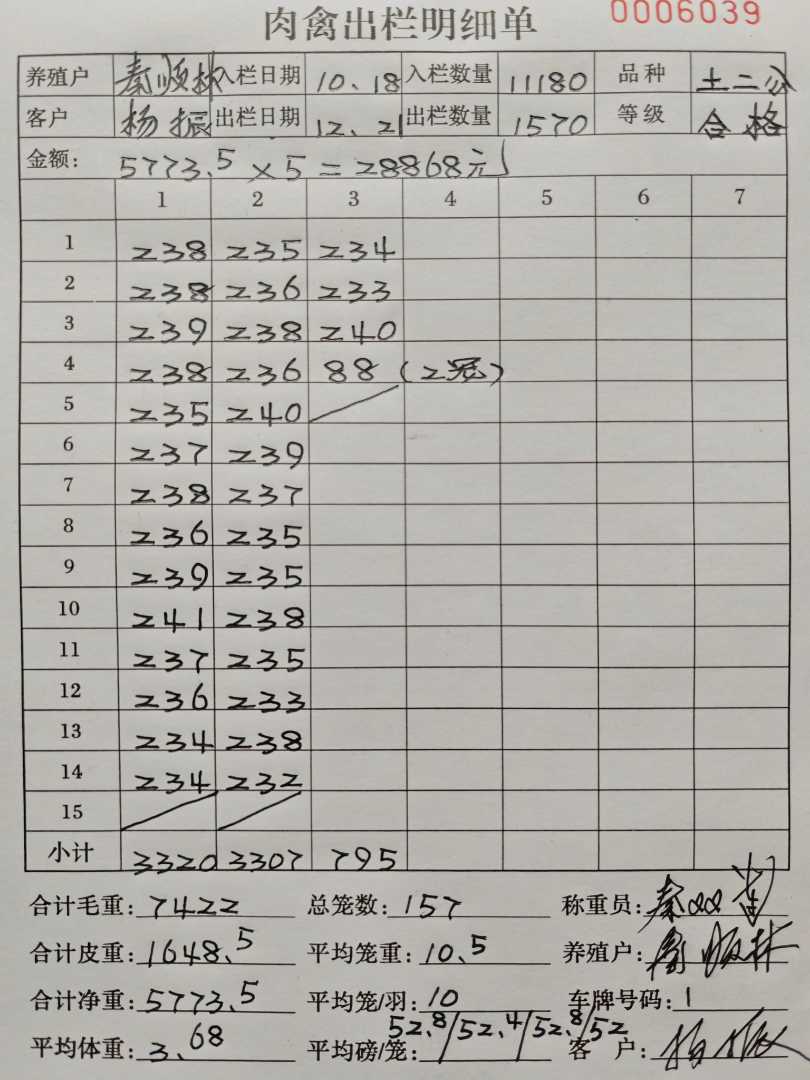 肉禽出栏明细单 0006039
养殖户 秦顺林 入栏日期 10.18 入栏数量 11180 品种 土二公
客户 杨振 出栏日期 12.21 出栏数量 1570 等级 合格
金额: 5773.5×5=28868元
1 2 3 4 5 6 7
1 238 235 234
2 238 236 233
3 239 238 240
4 238 236 88 (2冠)
5 235 240
6 237 239
7 238 237
8 236 235
9 239 235
10 241 238
11 237 235
12 236 233
13 234 238
14 234 232
15
小计 3320 3307 795
合计毛重: 7422 总笼数: 157 称重员:
合计皮重: 1648.5 平均笼重: 10.5 养殖户: 秦顺林
合计净重: 5773.5 平均笼/羽: 10 车牌号码: 1
平均体重: 3.68 平均磅/笼: 52.8/52.4/52.8/52 客户: 杨振